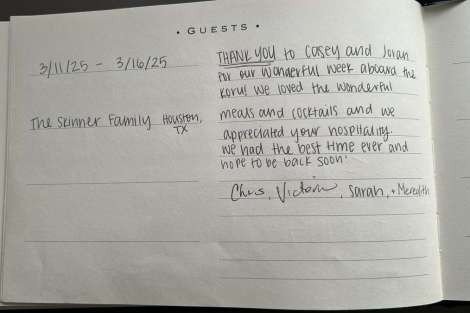 • GUESTS •
3/11/25 - 3/16/25
The Skinner Family Houston, TX
THANK YOU to Casey and Joran
for our wonderful week aboard the
Koru! we loved the wonderful
meals and cocktails and we
appreciated your hospitality.
we had the best time ever and
hope to be back soon!
Chris, Victoria, Sarah, + Meredith